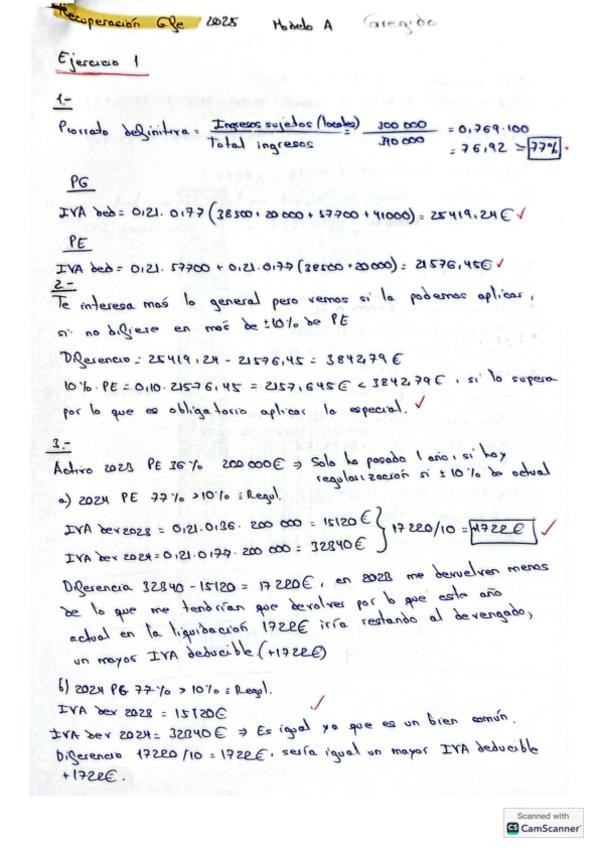 Recuperación GFe 2025 Modelo A Corregido
Ejercicio 1
1.-
Prorrata definitiva = Ingresos sujetos (locales) / Total ingresos = 300 000 / 390 000 = 0,769·100
= 76,92 = 77%
PG
IVA ded = 0,21·0,77 (38500+20 000+57700+41000) = 25419,24€ ✓
PE
IVA ded = 0,21·57700 + 0,21·0,77 (38500+20000) = 21576,45€ ✓
2.-
Te interesa más la general pero vemos si la podemos aplicar,
si no difiere en más de ±10% de PE
Diferencia = 25419,24 - 21576,45 = 3842,79 €
10% · PE = 0,10 · 21576,45 = 2157,645€ < 3842,79€, si lo supera
por lo que es obligatorio aplicar la especial. ✓
3.-
Activo 2023 PE 36% 200 000€ ⇒ Solo ha pasado 1 año, si hay
regularización si ± 10% de actual
a) 2024 PE 77% > 10% = Regul.
IVA der 2023 = 0,21·0,36·200 000 = 15120€
IVA der 2024 = 0,21·0,77·200 000 = 32340€
} 17220/10 = 1722€ ✓
Diferencia 32340 - 15120 = 17220€, en 2023 me devuelven menos
de lo que me tendrían que devolver por lo que este año
actual en la liquidación 1722€ iría restando al devengado,
un mayor IVA deducible (+1722€)
b) 2024 PG 77% > 10% = Regul.
IVA der 2023 = 15120€ ✓
IVA der 2024 = 32340€ ⇒ Es igual ya que es un bien común.
Diferencia 17220/10 = 1722€, sería igual un mayor IVA deducible
+1722€.
Scanned with
CS CamScanner